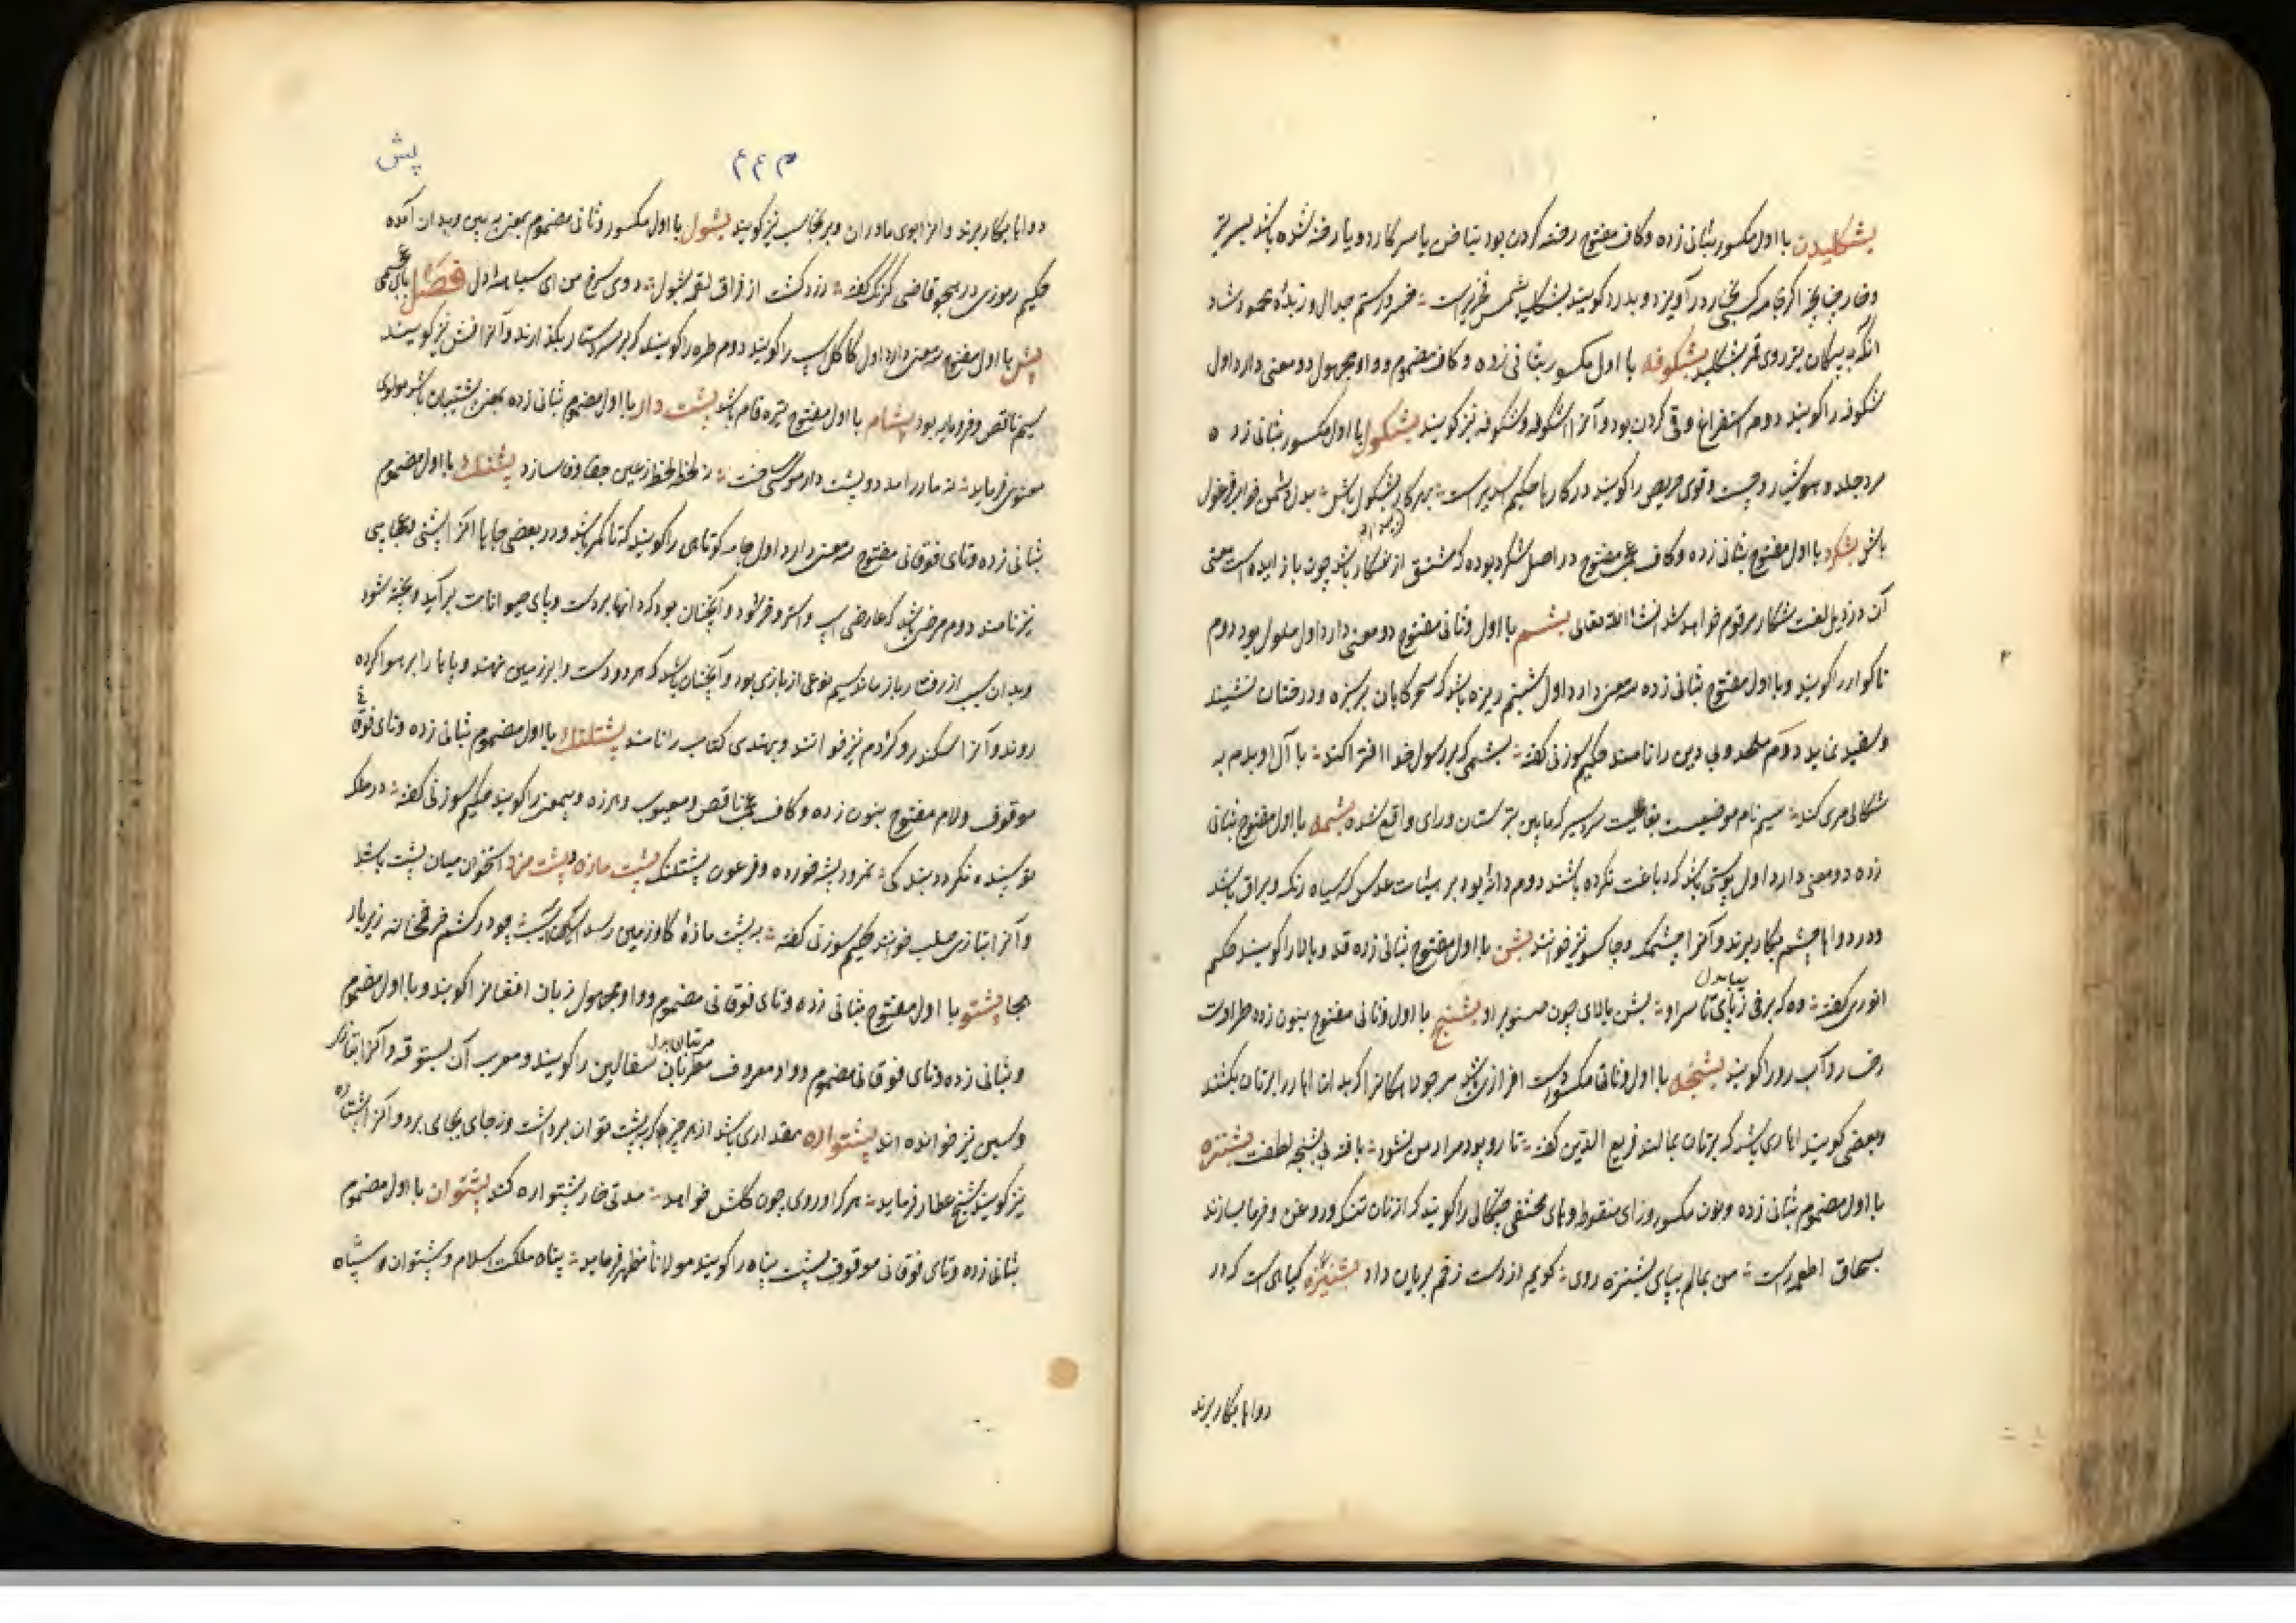 بشکلیدن با اول مکسور بثانی زده وکاف مفتوح رخنه کردن بود بناخن یا سر کارد و یا رخنه شده باشد بسر تیز
وخار جنانچه اکر جامه کسی بخار در آویزد و بدرد کویند بشکلید شمس فخری راست خسرو رستم جدال و زبده محمود شاه
انکه به پیکان بتر روی قمر بشکلید بشکوفه با اول مکسور بثانی زده وکاف مضموم وواو مجهول دو معنی دارد اول
شکوفه را کویند دوم استفراغ وقی کردن بود وآنرا اشکوفه وشکوفه نیز کویند بشکول با اول مکسور بثانی زده
مرد جلد و هوشیار و چست وقوی حریص را کویند در کارها حکیم اسدی راست بهر کار بشکول باش
باش بشکرد با اول مفتوح بثانی زده وکاف عجمی مفتوح در اصل شکرد بوده که مشتق از شکار باشد چون با زایده است معنی
آن در ذیل لغت شکار مرقوم خواهد شد انشاالله تعالی بشم با اول وثانی مفتوح دو معنی دارد اول ملول بود دوم
ناکوار را کویند وبا اول مفتوح بثانی زده سه معنی دارد اول شبنم ریزه باشد که سحرکاهان بر سبزه ودرختان نشیند
وسفید نماید دوم ملحد وبی دین را نامند حکیم سوزنی کفته بشمی که بر رسول خدا افترا کند با آل او بدم به
شکالی مری کند سیم نام موضعیست بغایت سردسیر که مابین تبرستان ورای واقع شده بشمه با اول مفتوح بثانی
زده دو معنی دارد اول پوستی باشد که دباغت نکرده باشند دوم دانه بود بر هیئات عدس که سیاه رنک وبراق باشد
ودر دواها چشم بکار برند وآنرا چشمک وچاکسو نیز خوانند بشن با اول مفتوح بثانی زده قد وبالا را کویند حکیم
انوری کفته وه که برفی ز پای تا سر او بشن بالای چون صنوبر او بشنج با اول وثانی مفتوح بنون زده طراوت
رخسار وآب رو را کویند بشنجه با اول وثانی مکسور است افزاری باشد مر جولاهکانرا که بدان اهار را برتان بکشند
وبعضی کویند اهاری باشد که برتان بمالند فریع الدین کفته تار وپود مراد من نشود بافته بی بشنجه لطفت بشنزه
با اول مضموم بثانی زده ونون مکسور وزای منقوط وهای مختفی چنکالی را کویند که از نان تنک وروغن وخرما بسازند
بسحاق اطعمه راست من بمالم بپای بشنزه روی کویم از دست زخم بریان داد بشنیزه کیاهی است که در
دواها بکار برند
م ۴۴ پش
دواها بکار برند وانرا بوی مادران وبرنجاسب نیز کویند بشول با اول مکسور وثانی مضموم بمعنی ببین وبدان آمده
حکیم رموزی در هجو قاضی کرنک کفته زرد کشت از فراق لقمه بشول روی سرخ من ای سیاه دل فصل بای عجمی
پش با اول مفتوح سه معنی دارد اول کاکل اسپ را کویند دوم طره را کویند که بر سر دستار بکذارند وآنرا فش نیز کویند
سیم ناقص وفرومایه بود پشام با اول مفتوح تیره فام باشد پشت دار با اول مضموم بثانی زده بمعنی پشتیبان باشد مولوی
معنوی فرماید نه مادر آمد دو پشت دار موسی ساخت نه لحظه لحظه زعین جفا وفا سازد پشتک با اول مضموم
بثانی زده وتای فوقانی مفتوح سه معنی دارد اول جامه کوتاهی را کویند که تا کمر باشد ودر بعضی جاها انرا پشتی
نیز نامند دوم مرضی باشد که عارض اسپ واستر وخر شود وآنچنان بود که دانها بر دست وپای حیوانات برآید وپخته شود
وبدان سبب از رفتار باز ماند سیم نوعی از بازی بود وآنچنان باشد که هر دو دست را بر زمین نهند وپاها را بر هوا کرده
روند وآنرا سکندر وکژدم نیز خوانند وبهندی کتاب را نامند پشتلنک با اول مضموم بثانی زده وتای فوقانی
موقوف ولام مفتوح بنون زده وکاف عجمی ناقص ومعیوب وهرزه وبیمعنی را کویند حکیم سوزنی کفته در ملک
تو بسنده نکردند بندکی نمرود پشه خورده وفرعون پشتلنک پشت مازه وپشت مزه استخوان میان پشت باشد
وآنرا بتازی صلب خوانند حکیم سوزنی کفته بر پشت مازه کاو زمین رسد آسیب چو در کشم خر خمخانه زیر بار
هجا پشتو با اول مفتوح بثانی زده وتای فوقانی مضموم وواو مجهول زبان افغانرا کویند وبا اول مضموم
وبثانی زده وتای فوقانی مضموم وواو معروف مرتبان سفالین را کویند ومعرب آن بستوقه وآنرا بتازی
وسین نیز خوانده اند پشتواره مقداری باشد از هر چیز که بپشت توان برداشت وز جای بجای برد وآنرا پشتاره
نیز کویند شیخ عطار فرماید هر کرا او روی چون کلش خواهد مدتی خار پشتواره کند پشتوان با اول مضموم
بثانی زده وتای فوقانی موقوف پشت پناه را کویند مولانا مظهر فرماید پناه ملکت اسلام وپشتوان سپاه